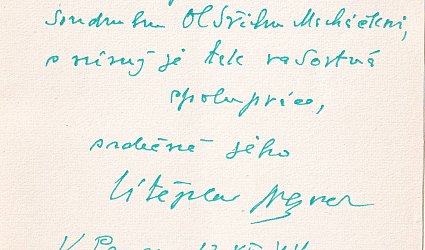 soudruhu Oldřichu Macháčkovi,
s nímž je tak radostná
spolupráce,
srdečně jeho
Vítězslav Nezval
V P